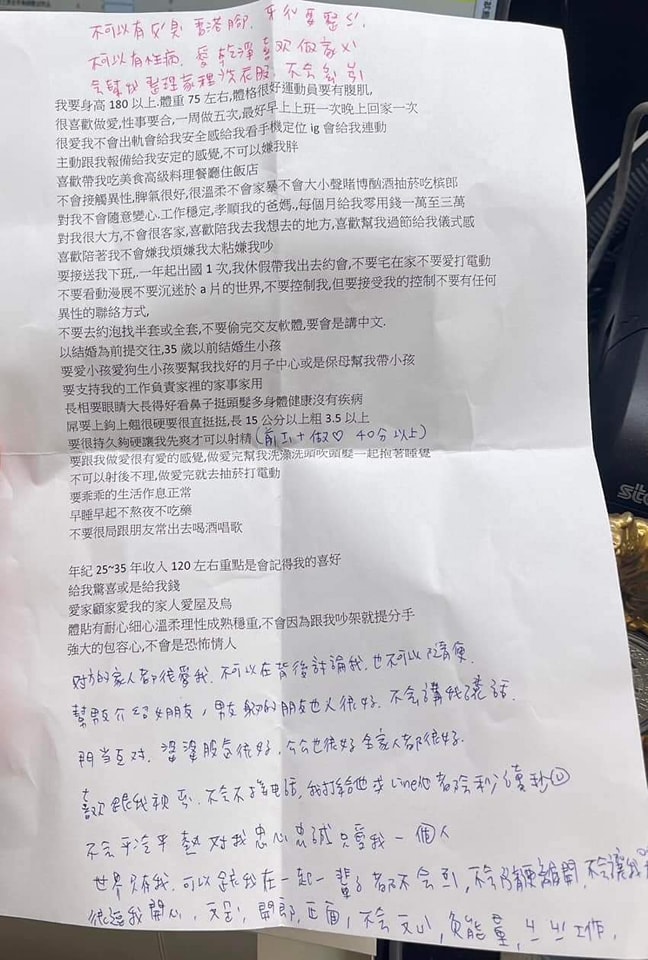 不可以有口臭 香港腳, 牙
不可以有性病, 愛乾淨喜歡做家
會幫我整理家裡洗衣服, 不會
我要身高 180 以上.體重 75 左右,體格很好運動員要有腹肌,
很喜歡做愛,性事要合,一周做五次,最好早上上班一次晚上回家一次
很愛我不會出軌會給我安全感給我看手機定位 ig 會給我連動
主動跟我報備給我安定的感覺,不可以嫌我胖
喜歡帶我吃美食高級料理餐廳住飯店
不會接觸異性,脾氣很好,很溫柔不會家暴不會大小聲賭博酗酒抽菸吃檳郎
對我不會隨意變心.工作穩定,孝順我的爸媽,,每個月給我零用錢一萬至三萬
對我很大方,不會很客家,喜歡陪我去我想去的地方,喜歡幫我過節給我儀式感
喜歡陪著我不會嫌我煩嫌我太粘嫌我吵
要接送我下班,.一年起出國 1 次,我休假帶我出去約會,不要宅在家不要愛打電動
不要看動漫展不要沉迷於 a 片的世界,不要控制我,但要接受我的控制不要有任何
異性的聯絡方式,
不要去約泡找半套或全套,不要偷完交友軟體,要會是講中文.
以結婚為前提交往,35 歲以前結婚生小孩
要愛小孩愛狗生小孩要幫我找好的月子中心或是保母幫我帶小孩
要支持我的工作負責家裡的家事家用
長相要眼睛大長得好看鼻子挺頭髮多身體健康沒有疾病
屌要上鉤上翹很硬要很直挺挺,長 15 公分以上粗 3.5 以上
要很持久夠硬讓我先爽才可以射精(前戲+做♡ 40分以上)
要跟我做愛很有愛的感覺,做愛完幫我洗澡洗頭吹頭髮一起抱著睡覺
不可以射後不理,做愛完就去抽菸打電動
要乖乖的生活作息正常
早睡早起不熬夜不吃藥
不要很局跟朋友常出去喝酒唱歌
年紀 25~35 年收入 120 左右重點是會記得我的喜好
給我驚喜或是給我錢
愛家顧家愛我的家人愛屋及烏
體貼有耐心細心溫柔理性成熟穩重,不會因為跟我吵架就提分手
強大的包容心,不會是恐怖情人
對方的家人都很愛我, 不可以在背後討論我, 也不可以隨便
幫男友介紹女朋友, 男友身邊的朋友也人很好, 不會講我壞話
門當互对, 婆婆脾氣很好, 公公也很好 全家人都很好.
喜歡跟我視訊, 不會不接电話, 我打給他或Line他都會秒讀秒回
不會乎冷乎熱 對我忠心忠誠 只愛我一個人
世界只有我, 可以跟我在一起一輩子都不會, 不會隨便離開, 不會讓我
很逗我開心, 開朗, 正面, 不會, 負能量, 工作.